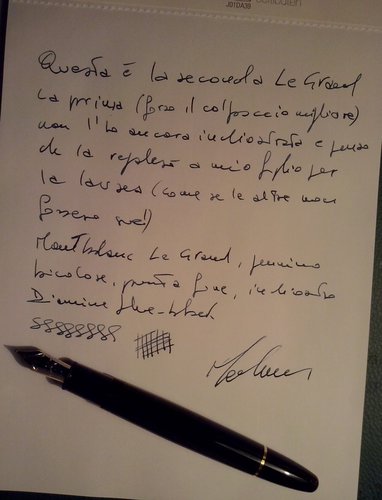 J01DA39
Questa è la seconda Le Grand
La prima (forse il colpaccio migliore)
non l'ho ancora inchiostrata e penso
che la regalerò a mio figlio per
la laurea (come se le altre non
fossero sue!)
Montblanc Le Grand, pennino
bicolore, punta fine, inchiostro
Diamine blue-black
88888888